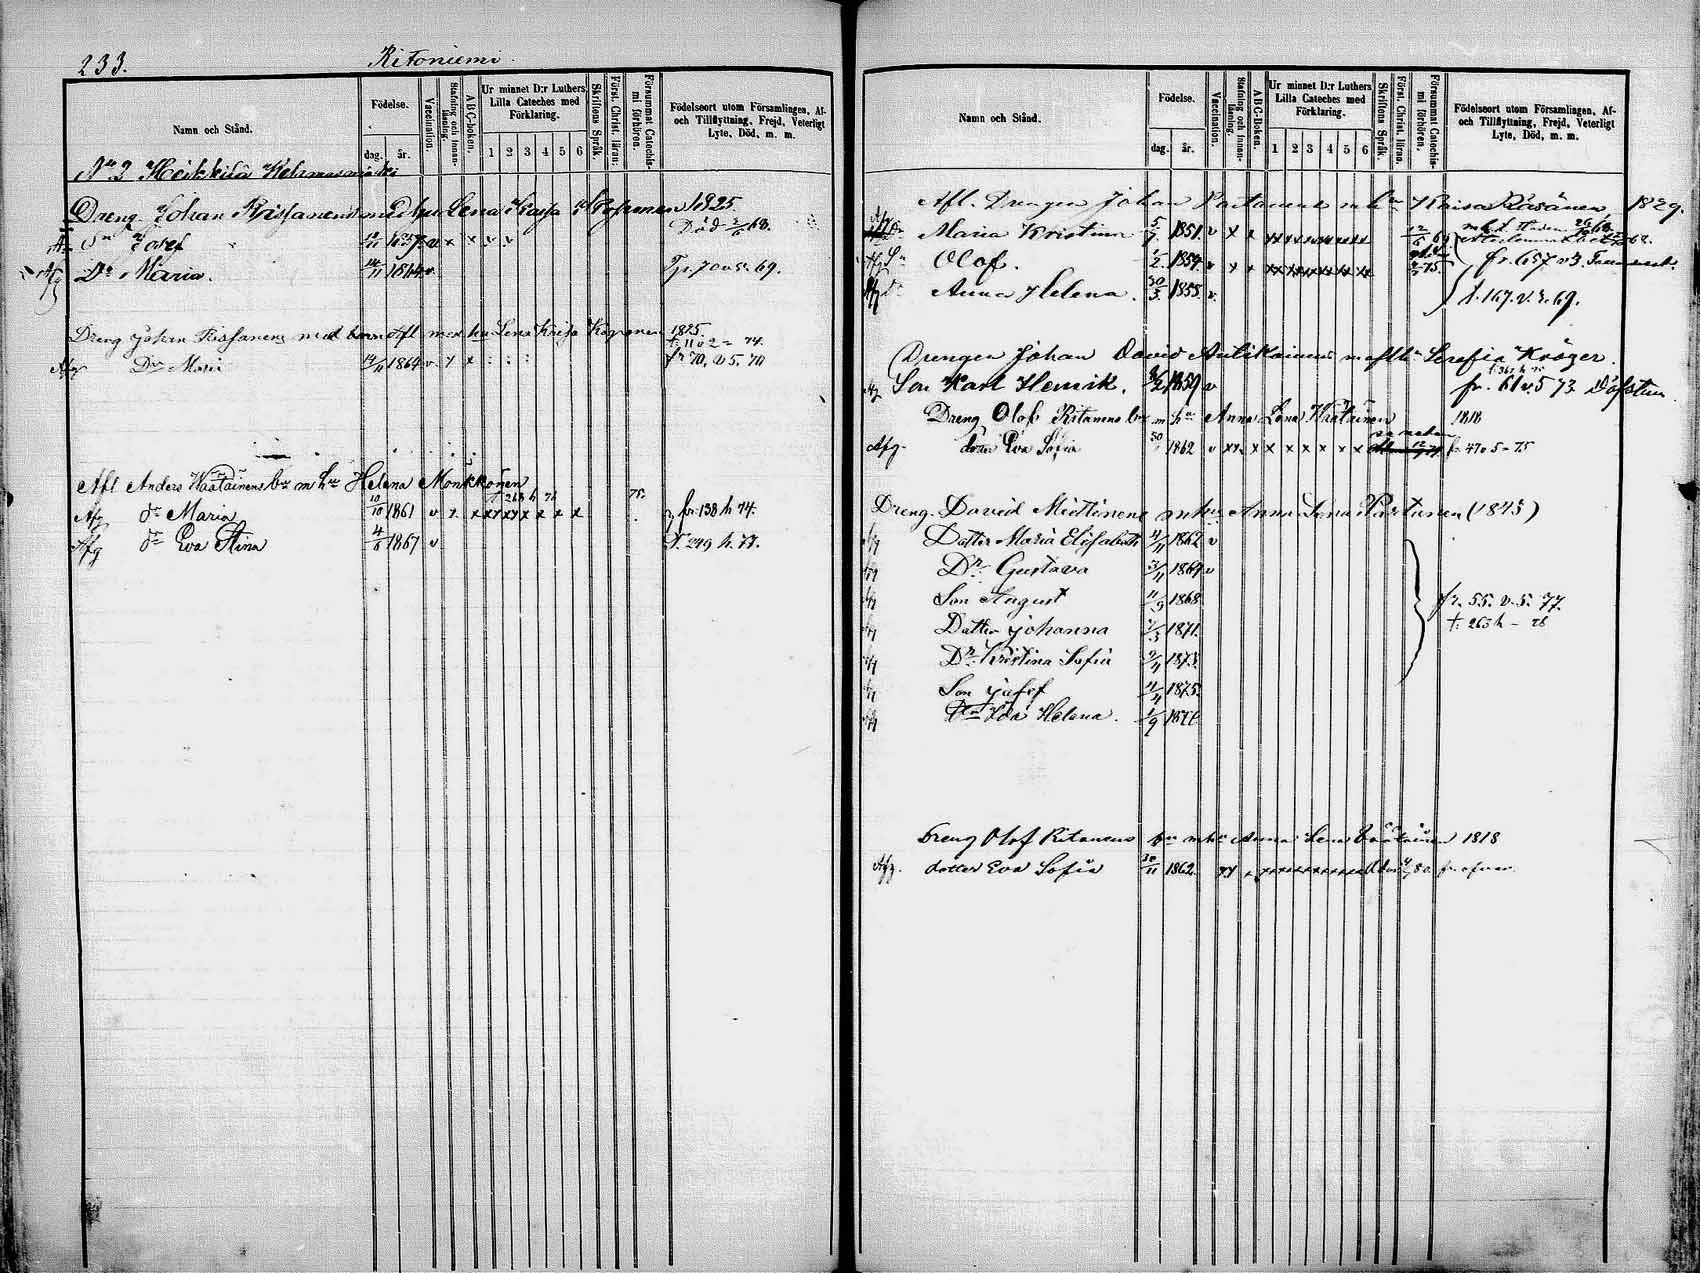 233. Ritoniemi.
Namn och Stånd.
Födelse.
dag. år.
Vaccination.
Stafning och Innanläsning.
A B C-boken.
Ur minnet D:r Luthers Lilla Cateches med Förklaring.
1 2 3 4 5 6
Skriftens Språk.
Först. Christ. läran.
Försummat Catechismi förhören.
Födelseort utom Församlingen, Af- och Tillflyttning, Frejd, Veterligt Lyte, Död, m. m.
No 2 Heikkilä
Dreng Johan Rissanens med hu Lena Kaisa 1825
Sn Josef v x x v v Död 68.
Afg Dr Maria. 14/11 1864 v. fr. 70 v. 5. 69.
Dreng Johan Rissanens med barn Afl med hu Lena Kaisa 1825
Afg Dr Maria 14/11 1864 v. x x fr 70, v 5. 74
Afl Anders Waatainens bn m hu Helena Mönkkönen
† 268 h 76
Afg dr Maria 10/10 1861 v x x x x x x x x 75. fr. 138 h 74.
Afg dr Eva Stina 4/6 1867 v T. 249 h. 77.
Namn och Stånd.
Födelse.
dag. år.
Vaccination.
Stafning och Innanläsning.
A B C-Boken.
Ur minnet D:r Luthers Lilla Cateches med Förklaring.
1 2 3 4 5 6
Skriftens Språk.
Först. Christ. läran.
Försummat Catechismi förhören.
Födelseort utom Församlingen, Af- och Tillflyttning, Frejd, Veterligt Lyte, Död, m. m.
Afl. Drengen Johan Partanens m hu Kaisa Räsänen 1829.
Dr Maria Kristina 5/7 1851. v x x
Afg Sn Olof. 1/2 1859. v x x fr. 657 v 3
Afg dr Anna Helena. 30/3 1855 v. t. 167. v. 5. 69.
Drengen Johan David Antikainens m hu Serafia Kröger.
Afg Son Karl Henrik. 1859 v fr. 61 v. 5 73. Döfstum
Dreng Olof Ritanens bn m hu Anna Lena Waatainen 1818
Afg. dotter Eva Sofia 30 1862 v x x x x x x x x fr. 47 v 5 - 75
Dreng. David Miettinens m hu Anna Lena Partanen (1843)
Afg Dotter Maria Elisabeth 4/11 1862 v
Afg Dr Gustava 3/11 1864 v
Afg Son August 11/9 1868 fr. 55. v. 5. 77.
Afg Dotter Johanna 1/3 1871. † 263 h - 78
Afg Dr Kristina Sofia 2/4 1873.
Afg Son Josef 11/4 1875.
Afg Dr Ida Helena. 1/9 1876
Dreng Olof Ritanens bn m hu Anna Lena Väätäinen 1818
Afg. dotter Eva Sofia 30/11 1862 x x x x x x x x x x 80. fr. ofvan.